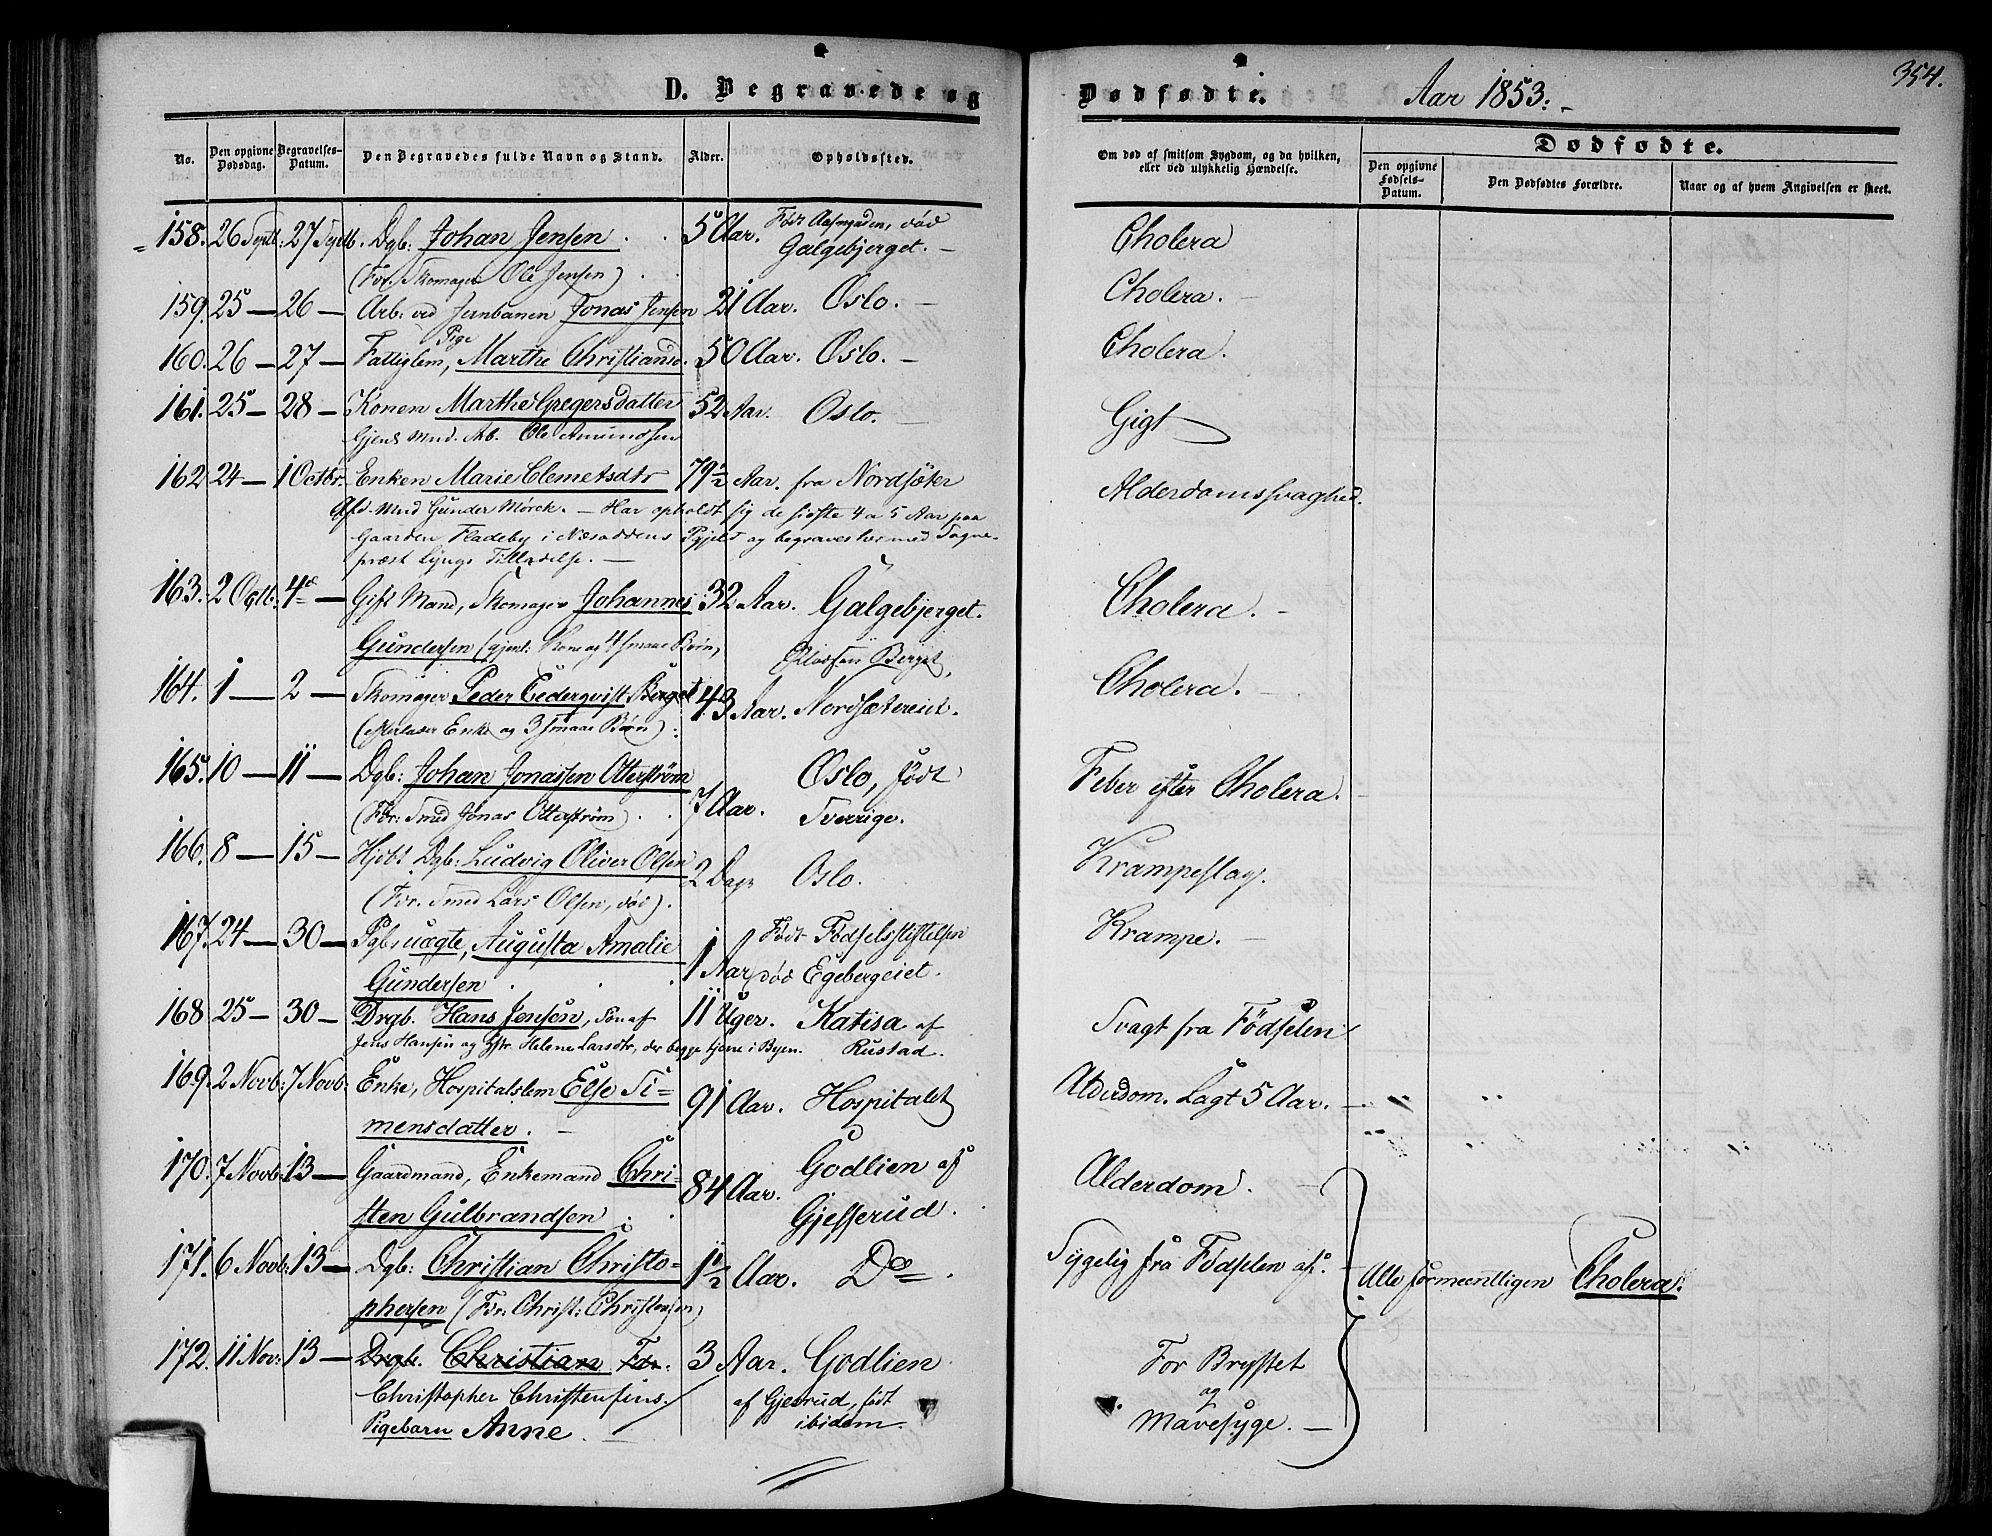 354.
D. Begravede og Dødfødte. Aar 1853.
No. Den opgivne Dødsdag. Begravelses-Datum. Den Begravedes fulde Navn og Stand. Alder. Opholdssted. Om død af smitsom Sygdom, og da hvilken, eller ved ulykkelig Hændelse. Dødfødte.
Den opgivne Fødsels-Datum. Den Dødfødtes Forældre. Naar og af hvem Angivelsen er skeet.
158. 26 Septb: 27 Septb. Dgb: Johan Jensen 5 Aar. Født Aasengaden, død Galgebjerget. Cholera
(For. Skomager Ole Jensen)
159. 25 — 26 — Arb: ved Jernbanen Jonas Jensen 21 Aar. Oslo. Cholera.
160. 26 — 27 — Fattiglem, Pige Marthe Christiansd. 50 Aar. Oslo. Cholera.
161. 25 — 28 — Konen Marthe Gregersdatter 52 Aar. Oslo. Gigt
Gjenl. Mnd. Arb. Ole Amundsen
162 24 — 1 Octbr. Enken Marie Clemetsdtr 79½ Aar. fra Nordsæter Alderdomssvaghed.
Afd. Mnd Gunder Mørck. — Har opholdt sig de sidste 4 a 5 Aar paa
Gaarden Fladeby i Næsoddens Pgjeld og begraves her med Sogne-
præst Lyngs Tilladelse. —
163. 2 Octb: 4de — Gift Mand, Skomager Johannes 32 Aar. Galgebjerget. Cholera.
Gundersen (gjenl: Kone og 4 smaae Børn)
164. 1 — 2 — Skomager Peder Cederqvist Berget 43 Aar. Berget, Nordsætereiet. Cholera.
(efterlader Enke og 3 smaae Børn)
165. 10 — 11 — Dgb: Johan Jonassen Otterstrøm 7 Aar. Oslo, født Sverrige. Feber efter Cholera.
(For: Smed Jonas Otterstrøm)
166. 8 — 15 — Hjdbt Dgb: Ludvig Oliver Olsen 2 Dage Oslo. Krampeslag.
(For. Smed Lars Olsen, død).
167. 24 — 30 — Pgb: uægte, Augusta Amalie 1 Aar Født Fødselsstiftelsen død Egebergeiet. Krampe.
Gundersen
168 25 — 30 — Drgb. Hans Jensen, Søn af 11 Uger. Katisa af Rustad. Svagt fra Fødselen
Jens Hansen og Hstr. Helene Larsdtr, der begge tjene i Byen.
169. 2 Novb: 7 Novb: Enke, Hospitalslem Else Si- 91 Aar. Hospitalet Alderdom. Lagt 5 Aar.
mensdatter.
170. 7 Novb: 13 — Gaardmand, Enkemand Chri- 84 Aar. Godlien af Gjesserud. Alderdom.
sten Gulbrandsen
171. 6 Novb: 13 — Dgb: Christian Christo- 1½ Aar. Do. Sygelig fra Fødselen af. Alle formeentligen Cholera.
phersen (For: Christ: Christensen)
172. 11 Nov: 13 — Drgb. Christian For. 3 Aar. Godlien For Brystet
Christopher Christensens af Gjesrud, født og
Pigebarn Anne. ibidem. Mavesyge.